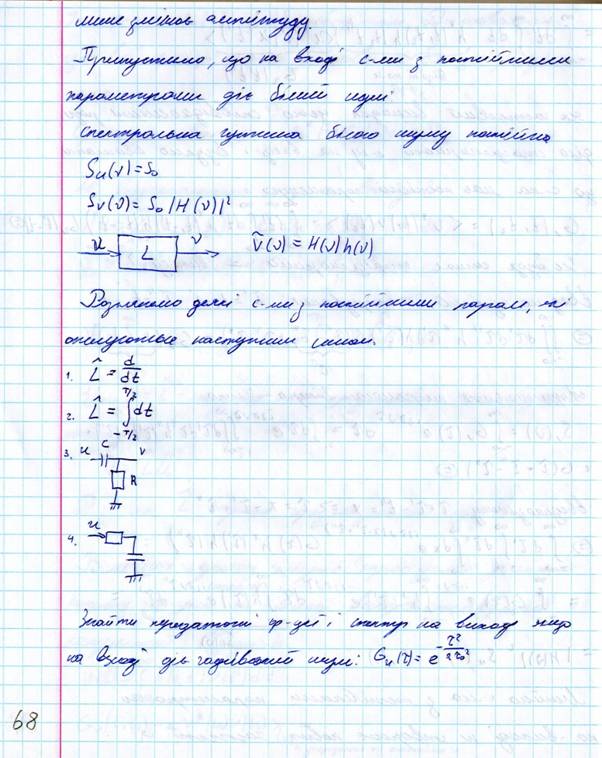 лише змінює амплітуду.
Припустимо, що на вході с-ми з постійними
параметрами діє білий шум
Спектральна густина білого шуму постійна
Su(ν) = S₀
Sv(ν) = S₀ |H(ν)|²
u L v ṽ(ν) = H(ν)h(ν)
Розглянемо деякі с-ми з постійними парам., які
описуються наступним чином.
1. L̂ = d/dt
2. L̂ = ∫_{-T/2}^{T/2} dt
3. u C v
R
4. u
Знайти передаточні ф-ції і спектр на виході якщо
на вході діє гаусівський шум: Gu(τ) = e^{-τ²/2τ₀²}
68